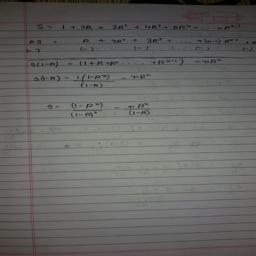 S = 1 + 2R + 3R² + 4R³ + 5R⁴ + ..... nRⁿ⁻¹
RS = R + 2R² + 3R³ + ..... +(n-1) Rⁿ⁻¹ +
(-) (-) (-) (-) (-)
S(1-R) = (1+R+R² ..... +Rⁿ⁻¹) - nRⁿ
S(1-R) = 1(1-Rⁿ) / (1-R) - nRⁿ
S = (1-Rⁿ) / (1-R)² - nRⁿ / (1-R)